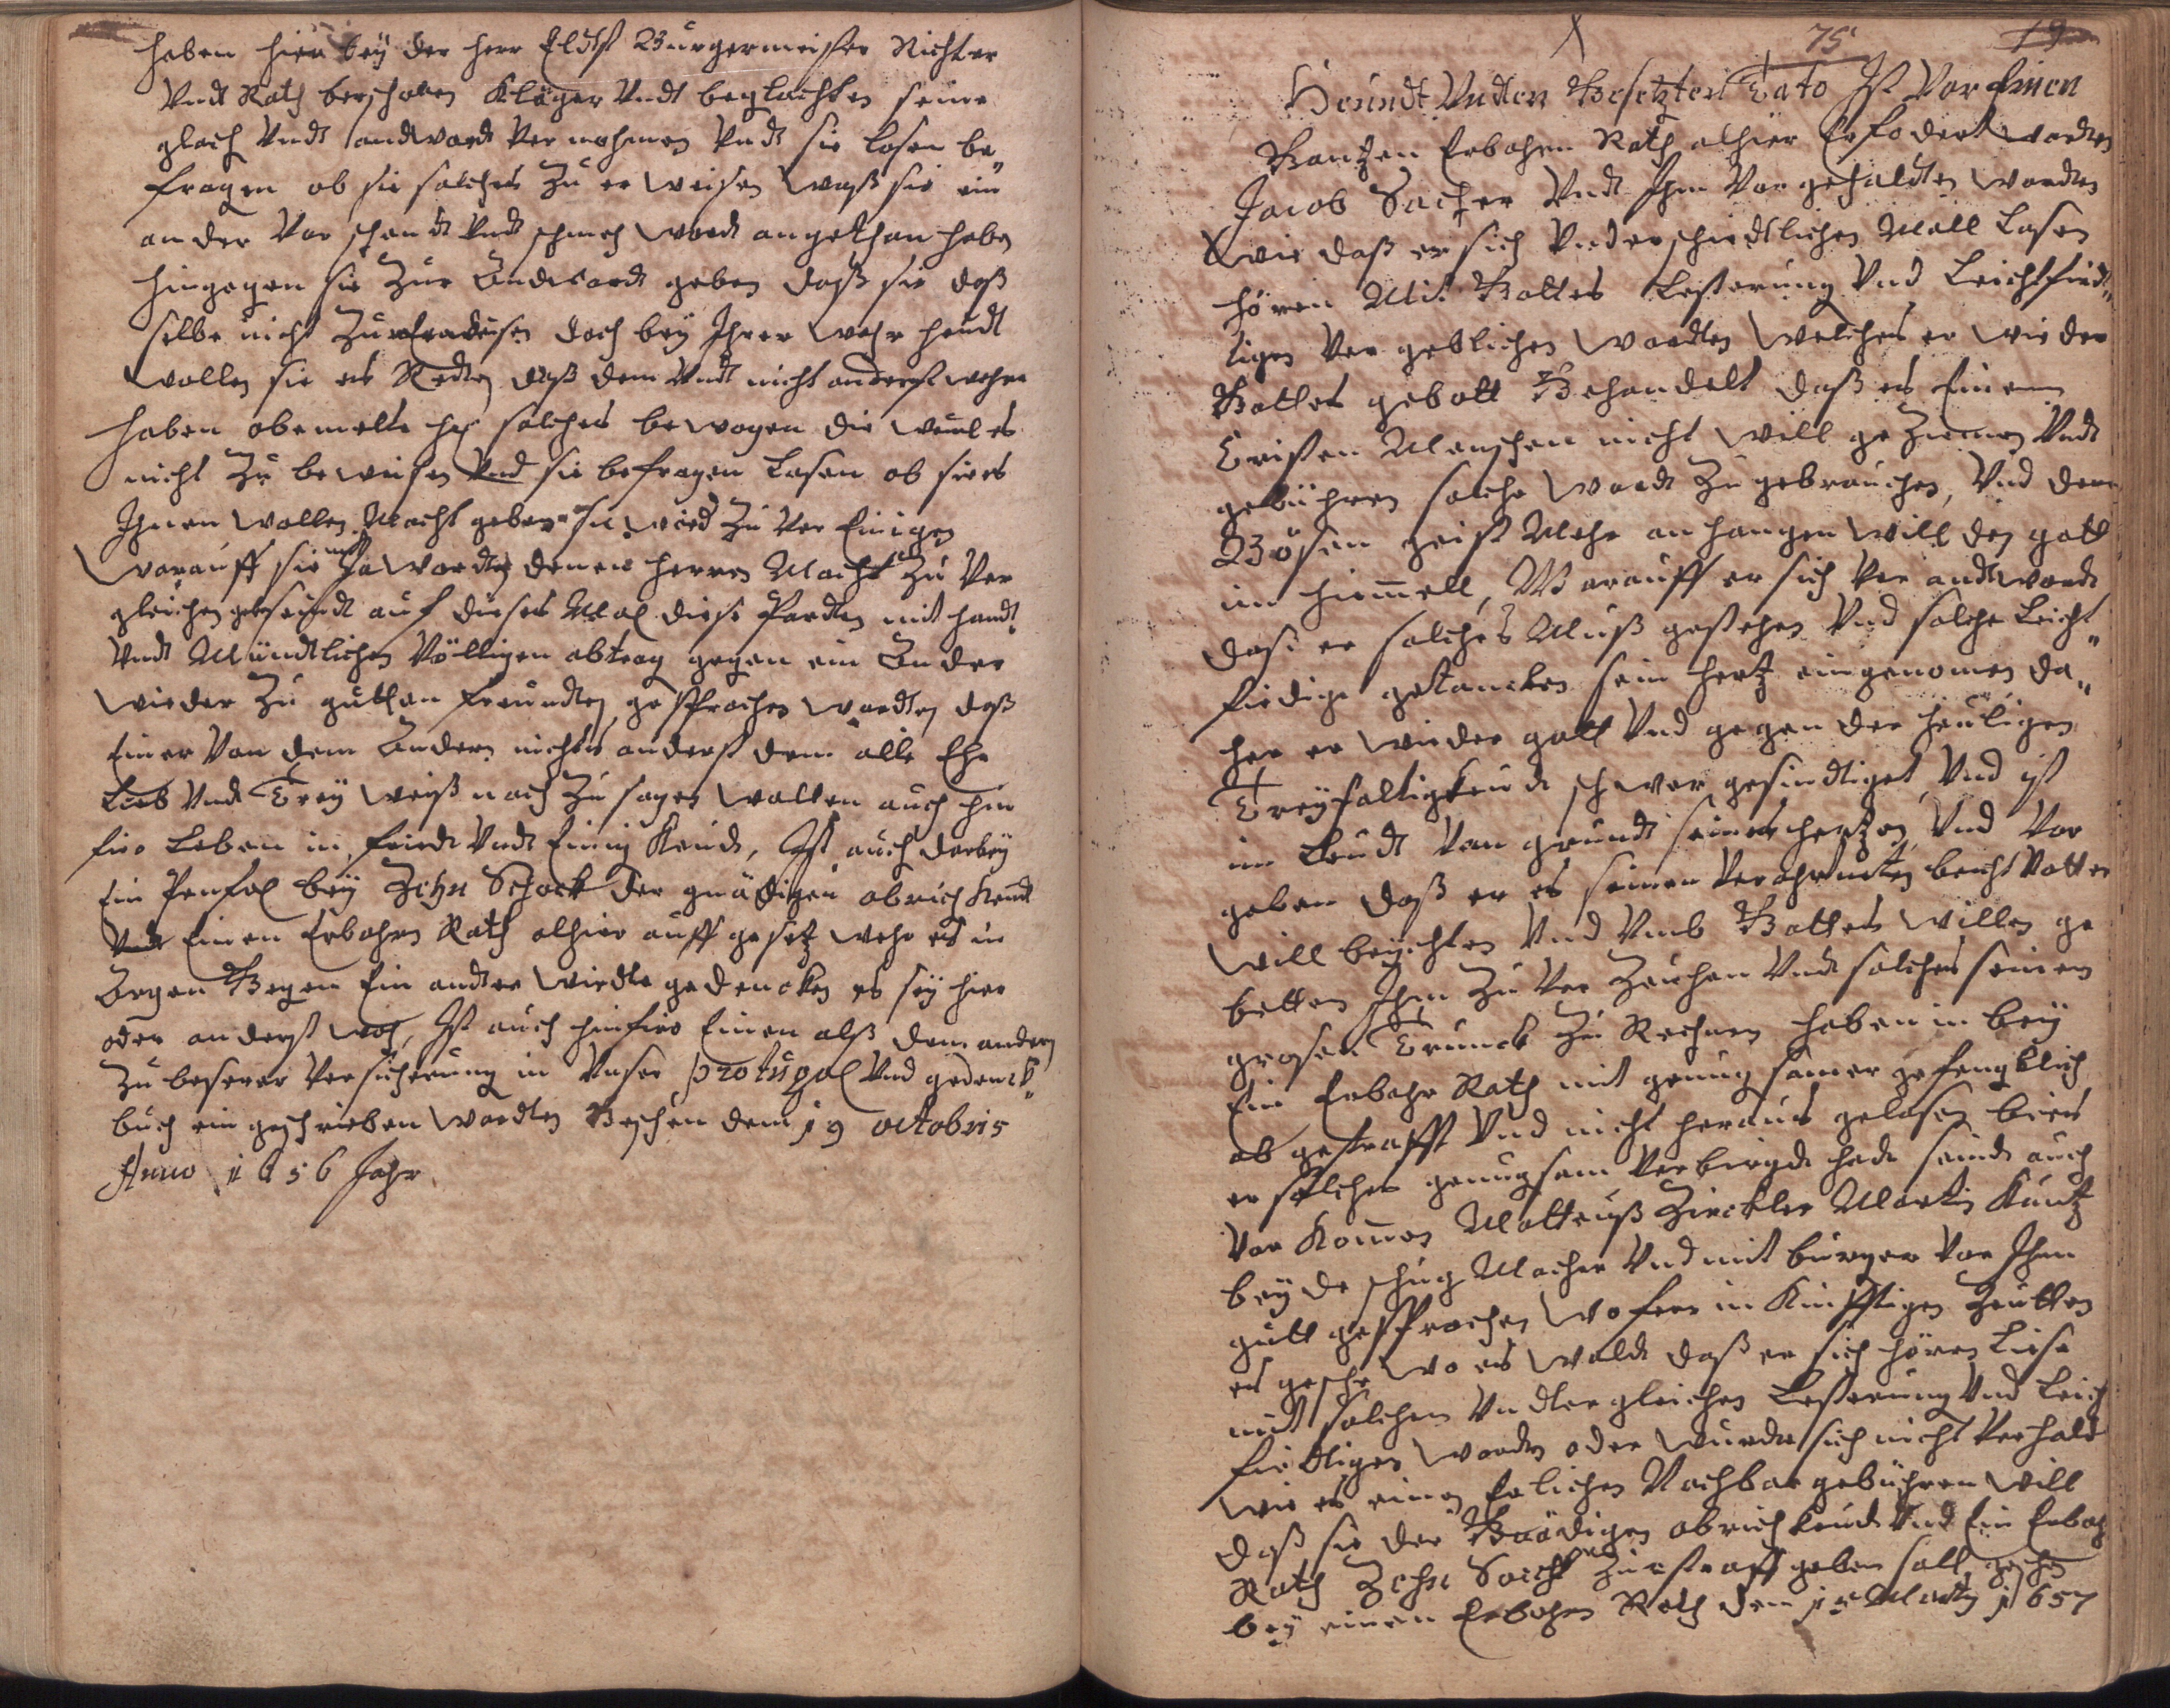 haben hier bey der herr Eldst Burgermeister Richter
Vndt Rath beschaben Kläger Vndt beglachten seine
glach Vndt andtwordt Vernohmen Vndt sie lasen be„
fragen ob sie solches Zu erweisen waß sie ein
ander Vor schandt Vndt schmeh wordt angethan haben
hingegen sie Zur Andwordt geben daß sie daß
selbe nicht Zu erweisen doch bey Ihrer wahrheudt
wollen sie es Redten daß dem Vndt nicht anderst wehre
haben obemelte h solches bewogen die weul es
nicht Zu beweisen Vnd sie befragen lasen ob sie es
Ihnen wollen Macht geben sie wied Zu Ver Einigen
worauff sie Ja wordten denen herren Macht Zu Ver
gleichen geben seindt auf dieses Mal diese Parten mit handt„
Vndt Mündtlichen Völligen abtrag gegen ein Ander
wieder Zu guthen freundten gesprochen wordten daß
Einer Von dem Andern nichts anderst dem alle Ehr
Lieb Vndt Trey weiß nach Zu sagen wollen auch hin
firo Leben in friedt Vndt Einig Keudt, Ist auch darbey
Ein Penfal bey Zehn Schock der gnädigen obrich Keudt
Vndt Einen Erbahren Rath alhier auff gesetz wehr es in
Argen Gegen Ein ander wirdte gedencken es sey hier
oder anderst wo, Ist auch hinfiro Einen alß dem andern
Zu beserer Versicherung in Vnser protugol Vnd gedenck„
buch ein geschrieben wordten Geschen dem 19 octobris
Anno 1656 Jahr
75 19
Heundt Vndten Gesetzten Dato Ist Vor Einen
Gantzen Erbahren Rath alhier Erfodert wordten
Jacob Sacher Vndt Ihm Vorgehaldten wordten
wie daß er sich Vnderschiedtlichen Mall lasen
hören Mit Gottes Lesterung Vnd Leichtfird„
tigen Vergeblichen wordten welches er wieder
Gottes gebott Gehandelt daß es Einem
Cristen Menschen nicht will geziemen Vndt
gebühren solche wordt Zu gebrauchen, Vnd dem
Bösen geist Mehr anhangen will den gott
im himmell, Worauff er sich Ver andtwordt
daß er solches Muß gestehen Vnd solche Leicht„
firdige gedancken sein hertz eingenomen da„
her er wieder gott Vnd gegen der heuligen
Dreyfaltigkeudt schwer gesindtiget Vnd ist
im Leudt Von grundt seines hertzen Vnd Vor
geben daß er es seinen Verohrneten beicht Vatter
will beychten Vnd Vmb Gottes willen ge
betten Ihm Zu Ver Zeuhen Vndt solches seinem
grosen Trunck Zu Rechnen haben in bey
Ein Erbahr Rath mit genugsamer gefengklich
ab gestrafft Vnd nicht heraus gelasen bies
er solches genugsam Verbirgdt hadt seindt auch
Vor Komen Matteuß Zirckler Martin Kuntz
beyde schug Macher Vnd mit burger Vor Ihm
gutt gesprochen wo fern in Kinfftigen Zeutten
es gesche wo es wolde daß er sich hören liese
mit solchen Vndtergleichen Lesterung Vnd Leich
firdtigen wordten oder wurde sich nicht Verhald
wie es einen Erlichen Nachbar gebühren will
daß sie der Gnädigen obrich Keudt Vnd Ein Erbah
Rath Zehn Sch Zur straff geben soll geschen
bey einen Erbahren Rath den 15 Martz 1657